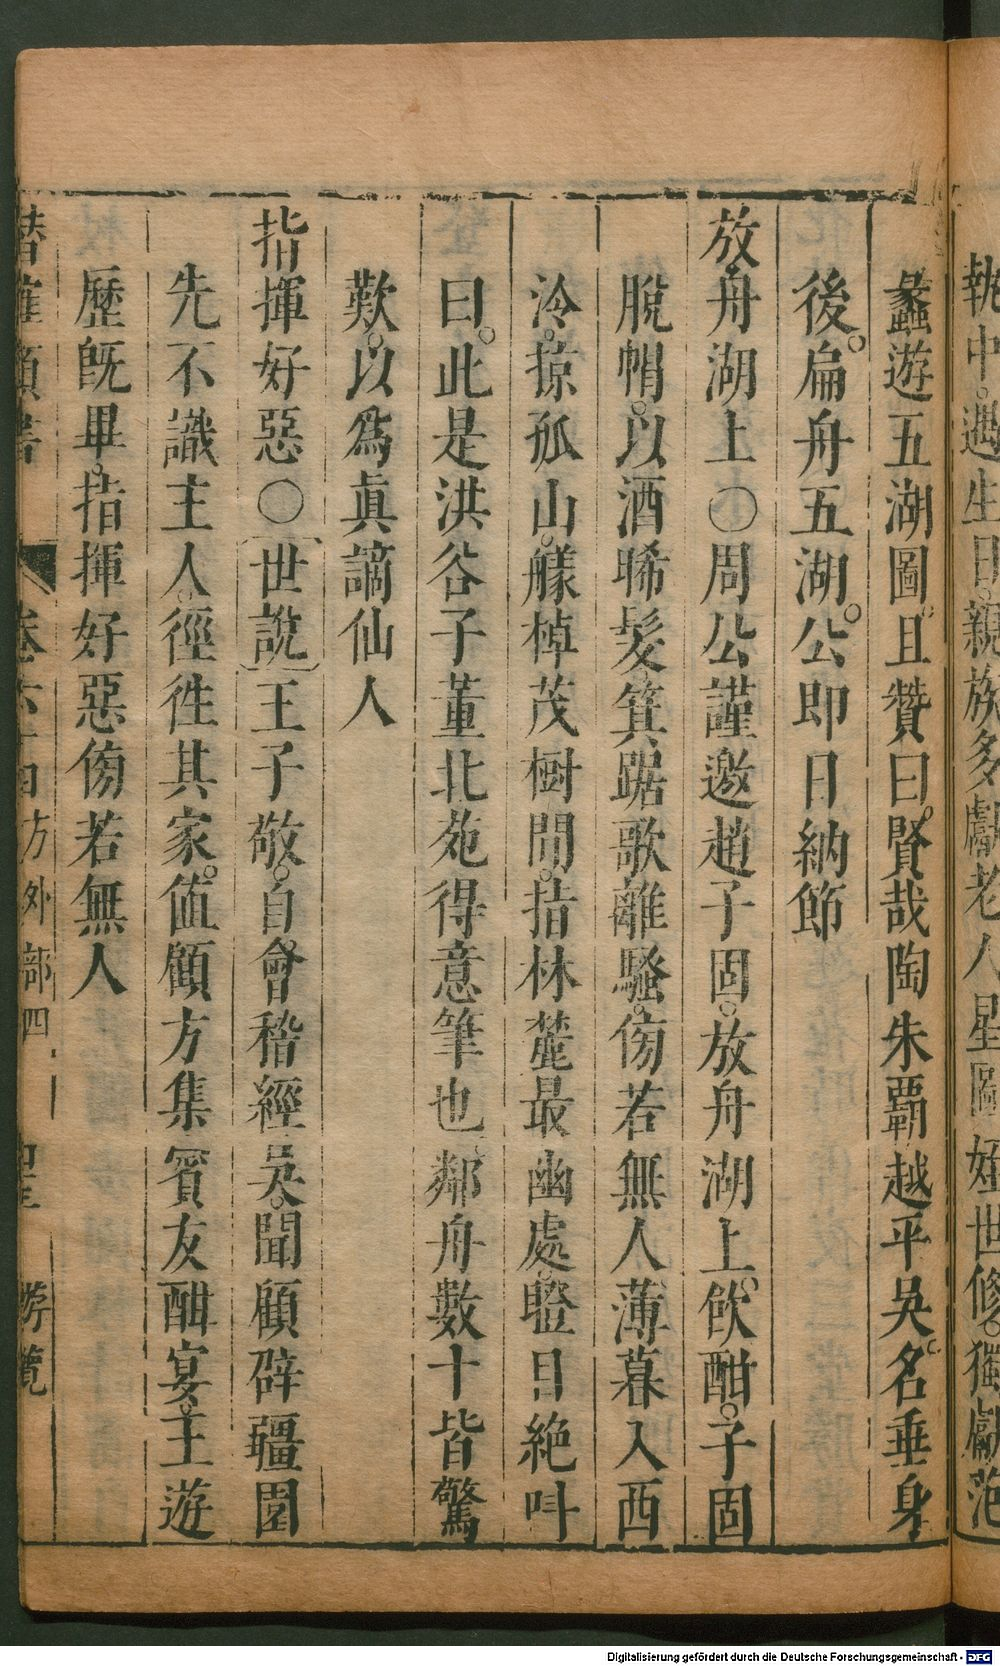 執中。遇生日。親族多獻老人星圖。姪世修。獨獻范
蠡遊五湖圖。且贊曰。賢哉陶朱霸越平吳。名垂身
後。扁舟五湖。公即日納節
放舟湖上〇周公謹邀趙子固。放舟湖上。飲酣。子固
脫帽。以酒晞髮。箕踞歌離騷。傍若無人薄暮入西
泠。掠孤山。艤棹茂樹間。指林麓最幽處。瞪目絶呌
曰。此是洪谷子董北苑得意筆也。鄰舟數十皆驚
歎。以爲眞謫仙人
指揮好惡〇世說王子敬。自會稽經吳。聞顧辟疆園
先不識主人。徑徃其家。値顧方集賓友酣宴。王遊
歷旣畢。指揮好惡傍若無人
方外部四 遊覽
Digitalisierung gefördert durch die Deutsche Forschungsgemeinschaft - DFG